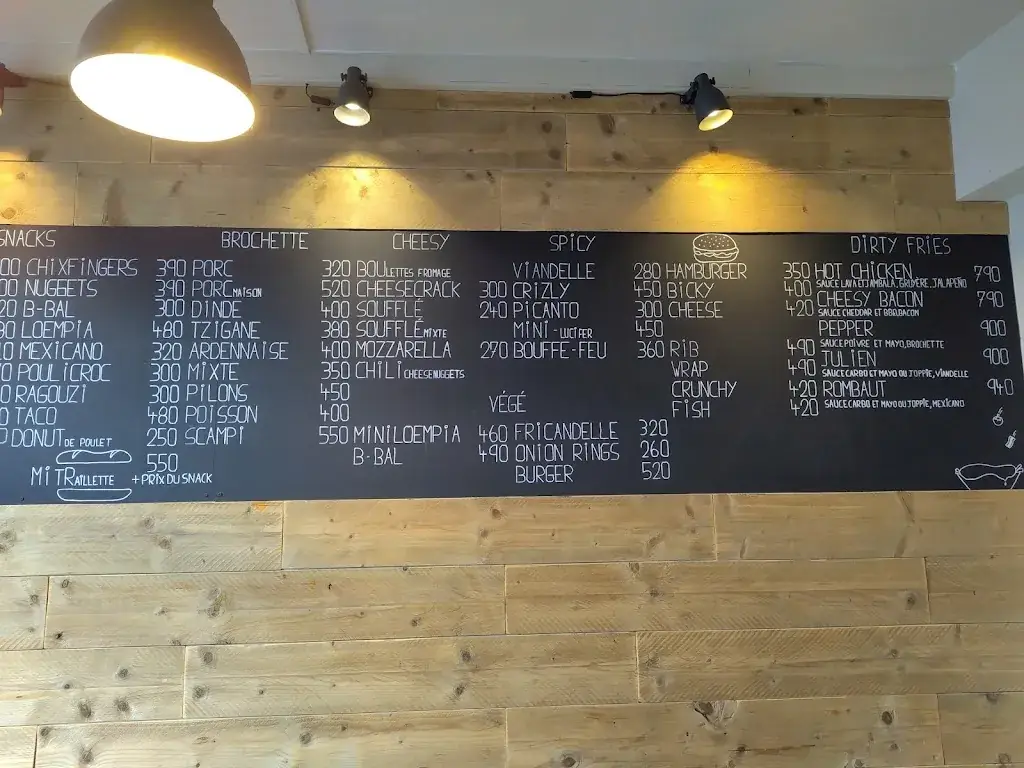 SNACKS
CHIXFINGERS
NUGGETS
B-BAL
LOEMPIA
MEXICANO
POULICROC
RAGOUZI
TACO
DONUT DE POULET
MITRAILLETTE + PRIX DU SNACK
BROCHETTE
390 PORC
390 PORC MAISON
300 DINDE
480 TZIGANE
320 ARDENNAISE
300 MIXTE
300 PILONS
480 POISSON
250 SCAMPI
550
CHEESY
320 BOULETTES FROMAGE
520 CHEESECRACK
400 SOUFFLÉ
380 SOUFFLÉ MIXTE
400 MOZZARELLA
350 CHILI CHEESENUGGETS
450
400
550 MINILOEMPIA
B-BAL
SPICY
VIANDELLE
300 CRIZLY
240 PICANTO
MINI-LUCIFER
270 BOUFFE-FEU
VÉGÉ
460 FRICANDELLE 320
490 ONION RINGS 260
BURGER 520
280 HAMBURGER
450 BICKY
300 CHEESE
450
360 RIB
WRAP
CRUNCHY
FISH
350
400
420
490
490
420
420
DIRTY FRIES
HOT CHICKEN 790
SAUCE LAVA ET JAMBALA, GRUYÈRE, JALAPEÑO
CHEESY BACON 790
SAUCE CHEDDAR ET BBQ, BACON
PEPPER 900
SAUCE POIVRE ET MAYO, BROCHETTE
JULIEN 900
SAUCE CARBO ET MAYO OU JOPPIE, VIANDELLE
ROMBAUT 940
SAUCE CARBO ET MAYO OU JOPPIE, MEXICANO